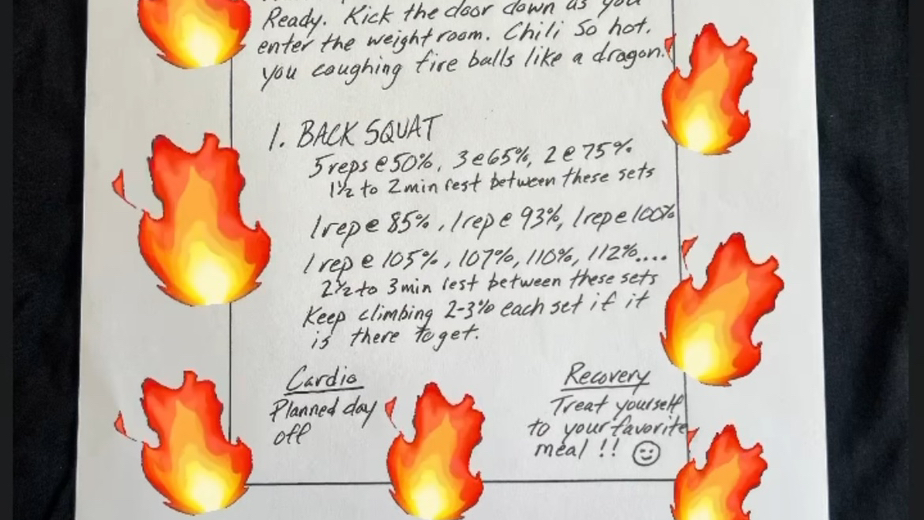 Ready. Kick the door down as you
enter the weight room. Chili So hot.
you coughing fire balls like a dragon.
1. BACK SQUAT
5 reps @ 50%, 3 @ 65%, 2 @ 75%
1½ to 2 min rest between these sets
1 rep @ 85%, 1 rep @ 93%, 1 rep @ 100%
1 rep @ 105%, 107%, 110%, 112%....
2½ to 3 min rest between these sets
Keep climbing 2-3% each set if it
is there to get.
Cardio
Planned day
off
Recovery
Treat yourself
to your favorite
meal!!